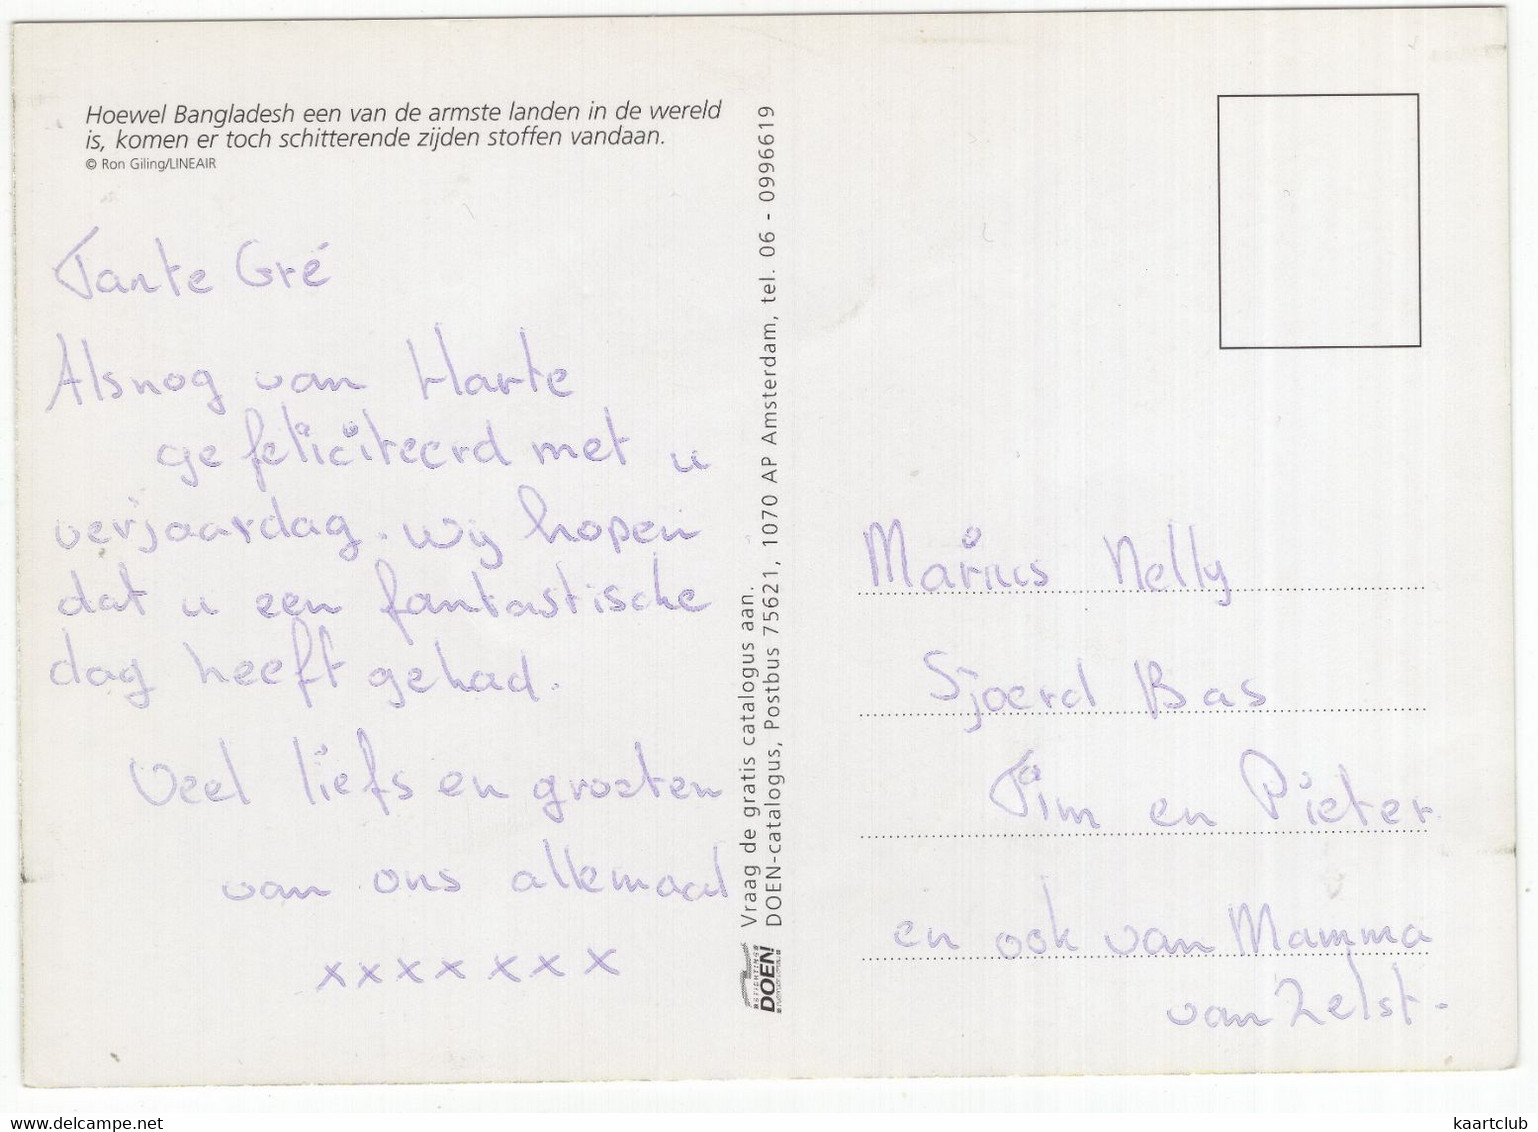 Hoewel Bangladesh een van de armste landen in de wereld
is, komen er toch schitterende zijden stoffen vandaan.
© Ron Giling/LINEAIR
Tante Gré
Alsnog van Harte
gefeliciteerd met u
verjaardag. wij hopen
dat u een fantastische
dag heeft gehad.
Veel liefs en groeten
van ons allemaal
xxxx xxx
Vraag de gratis catalogus aan.
DOEN-catalogus, Postbus 75621, 1070 AP Amsterdam, tel. 06 - 0996619
STICHTING
DOEN!
Marius Nelly
Sjoerd Bas
Tim en Pieter.
en ook van Mamma
van Zelst.
www.delcampe.net
kaartclub